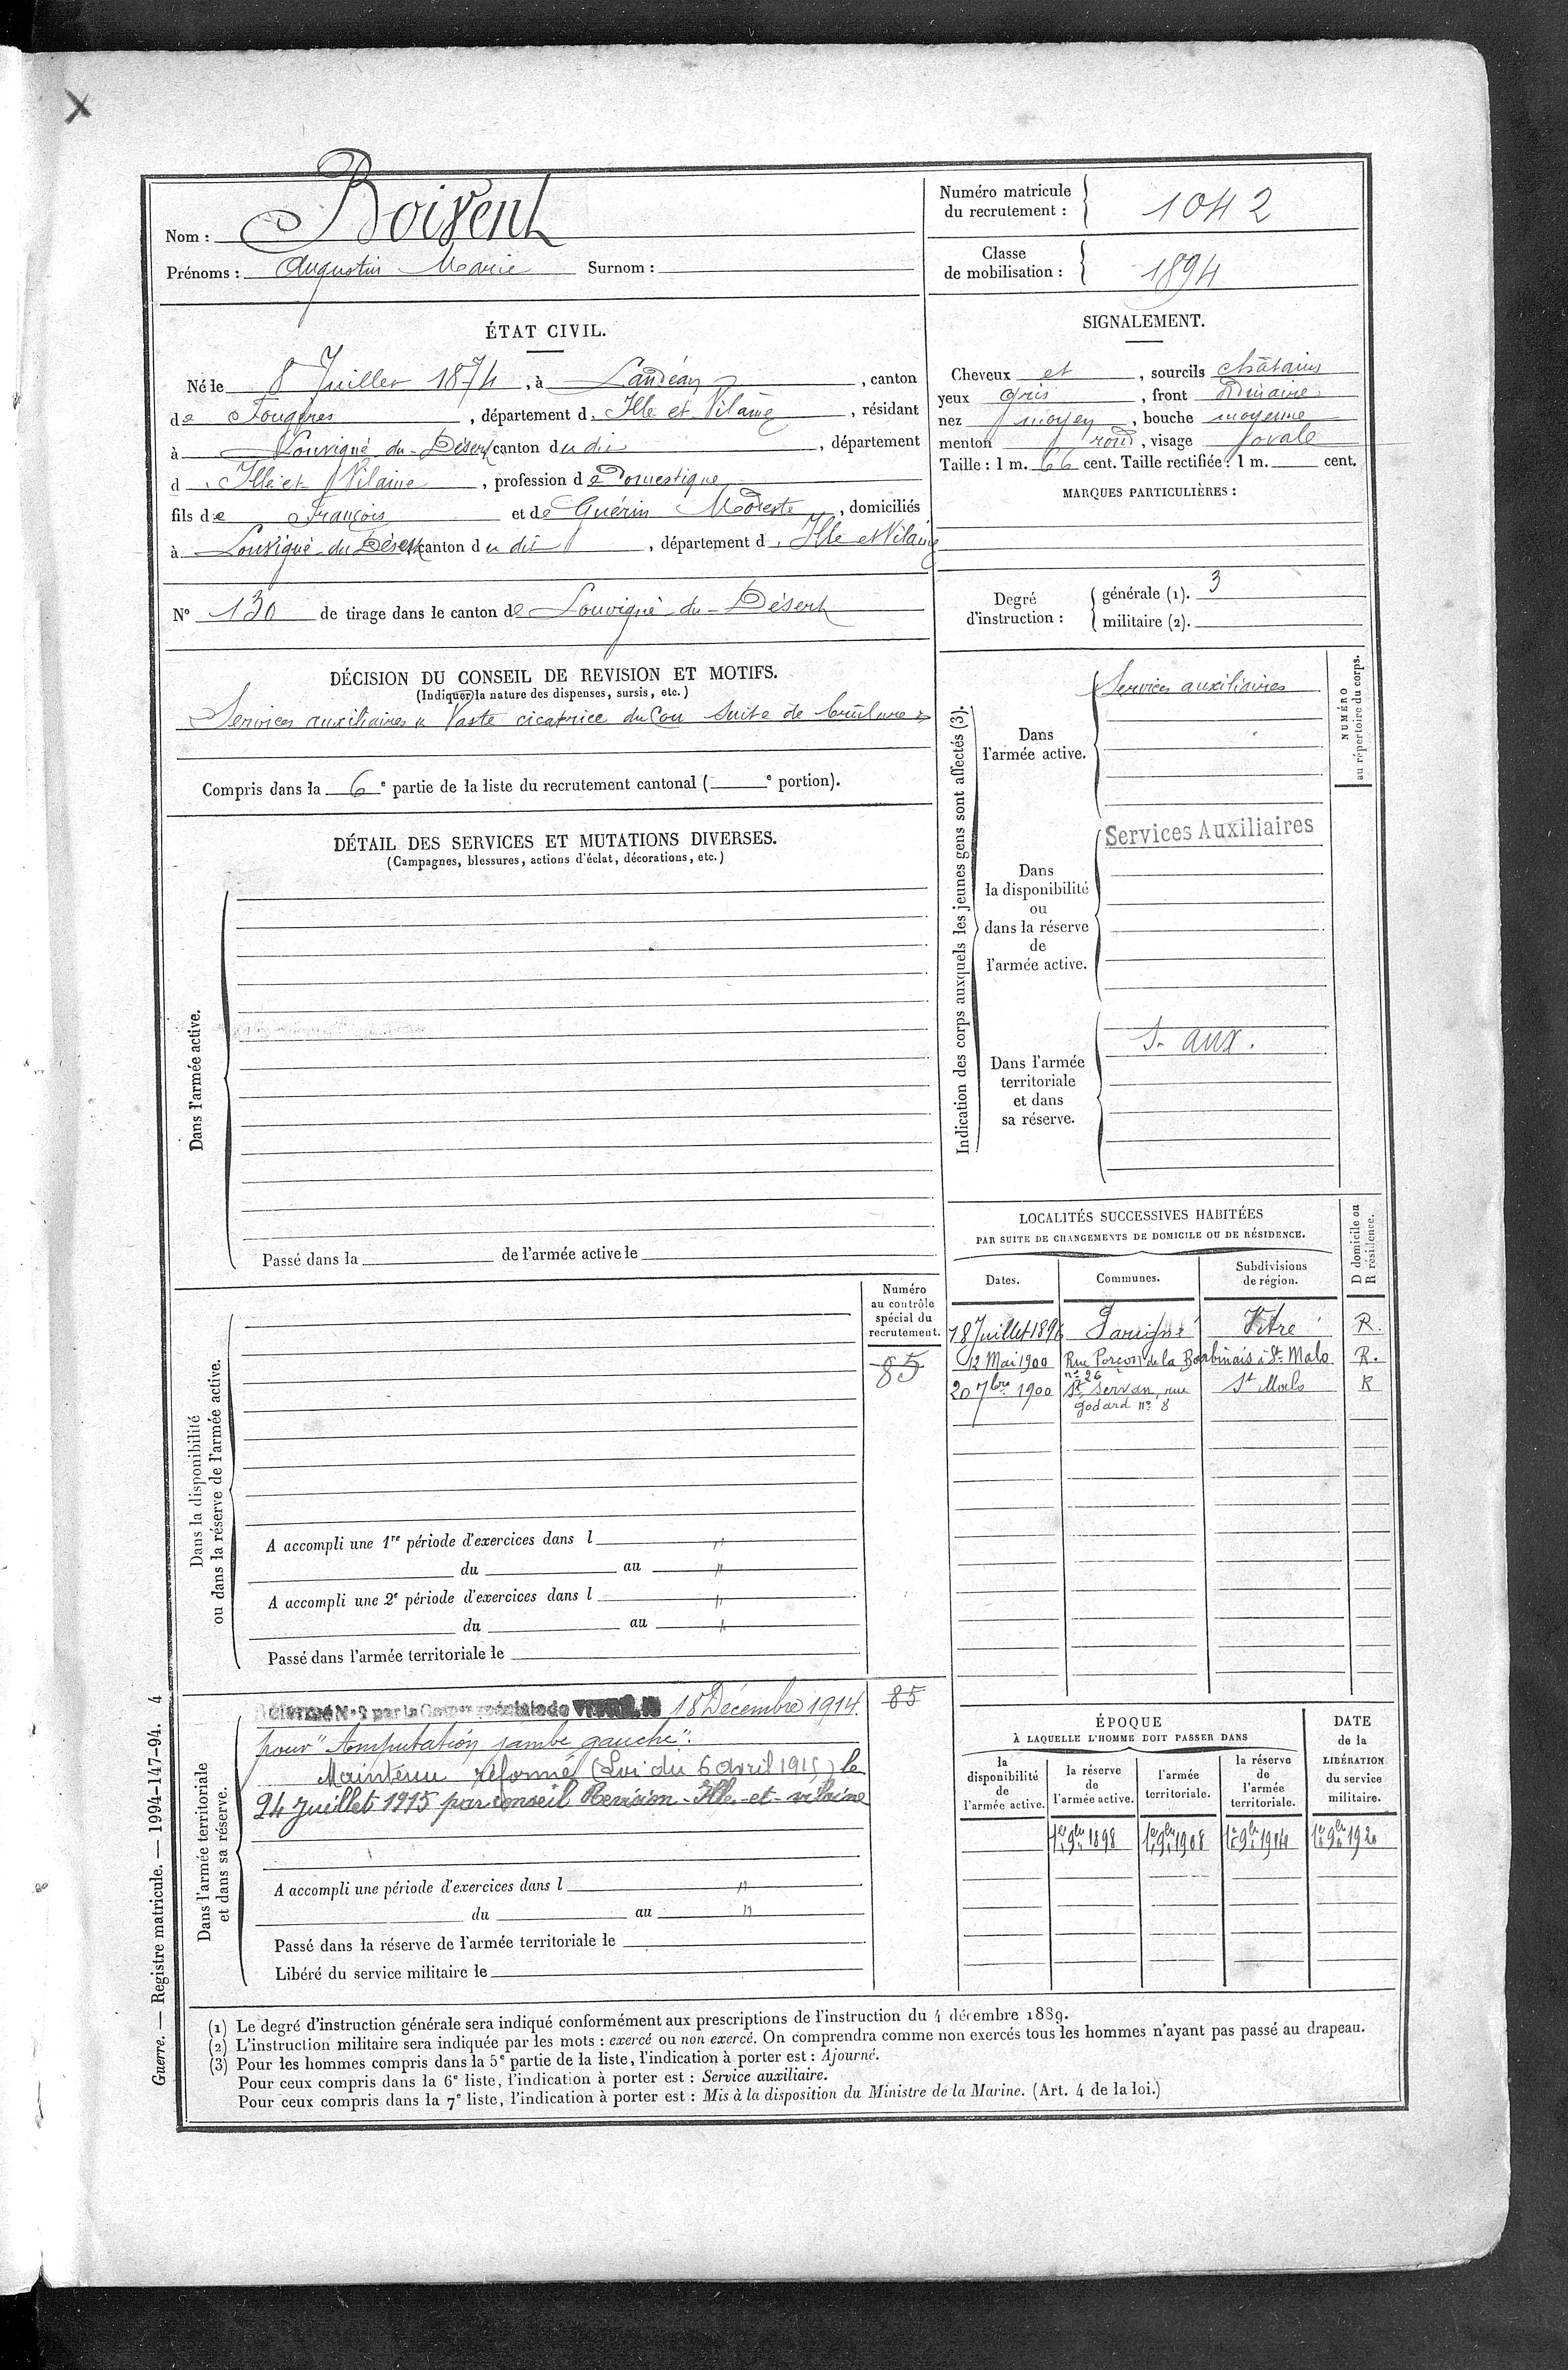 Nom : Boivent
Prénoms : Augustin Marie Surnom :
Numéro matricule
du recrutement : 1042
Classe
de mobilisation : 1894
ÉTAT CIVIL.
Né le 8 Juillet 1874, à Landéan, canton
de Fougères, département d. Ille et Vilaine, résidant
à Louvigné du-Désert canton du dit, département
d. Ille et Vilaine, profession de Domestique
fils de François et de Guérin Modeste, domiciliés
à Louvigné du Désert canton du dit, département d. Ille et Vilaine
SIGNALEMENT.
Cheveux et, sourcils châtains
yeux gris, front ordinaire
nez moyen, bouche moyenne
menton rond, visage ovale
Taille : 1 m. 66 cent. Taille rectifiée : 1 m. cent.
MARQUES PARTICULIÈRES :
N° 130 de tirage dans le canton de Louvigné du-Désert
Degré
d'instruction :
générale (1). 3
militaire (2).
DÉCISION DU CONSEIL DE REVISION ET MOTIFS.
(Indiquer la nature des dispenses, sursis, etc.)
Services auxiliaires « Vaste cicatrice du Cou suite de brûlure »
Compris dans la 6e partie de la liste du recrutement cantonal ( e portion).
DÉTAIL DES SERVICES ET MUTATIONS DIVERSES.
(Campagnes, blessures, actions d'éclat, décorations, etc.)
Dans l'armée active.
Passé dans la de l'armée active le
Indication des corps auxquels les jeunes gens sont affectés (3).
NUMÉRO
au répertoire du corps.
Dans
l'armée active.
Services auxiliaires
Dans
la disponibilité
ou
dans la réserve
de
l'armée active.
Services Auxiliaires
Dans l'armée
territoriale
et dans
sa réserve.
S. aux.
LOCALITÉS SUCCESSIVES HABITÉES
PAR SUITE DE CHANGEMENTS DE DOMICILE OU DE RÉSIDENCE.
Dates. Communes. Subdivisions
de région.
D domicile ou
R résidence.
18 Juillet 1896 Parigné Vitré R.
12 Mai 1900 Rue Porcon de la Barbinais à St Malo R.
n° 26
20 7bre 1900 St Servan, rue St Malo R
Godard n° 8
Dans la disponibilité
ou dans la réserve de l'armée active.
Numéro
au contrôle
spécial du
recrutement.
85
A accompli une 1re période d'exercices dans l "
du au "
A accompli une 2e période d'exercices dans l "
du au "
Passé dans l'armée territoriale le
Dans l'armée territoriale
et dans sa réserve.
Réformé N°2 par la spéciale de 18 Décembre 1914. 85
pour "Amputation jambe gauche".
Maintenu réformé (Loi du 6 avril 1915) le
24 Juillet 1915 par conseil Revision - Ille-et-vilaine
A accompli une période d'exercices dans l "
du au "
Passé dans la réserve de l'armée territoriale le
Libéré du service militaire le
ÉPOQUE
À LAQUELLE L'HOMME DOIT PASSER DANS
la
disponibilité
de
l'armée active.
la réserve
de
l'armée active.
l'armée
territoriale.
la réserve
de
l'armée
territoriale.
DATE
de la
LIBÉRATION
du service
militaire.
1er 9bre 1898 1er 9bre 1908 1er 9bre 1914 1er 9bre 1920
(1) Le degré d'instruction générale sera indiqué conformément aux prescriptions de l'instruction du 4 décembre 1889.
(2) L'instruction militaire sera indiquée par les mots : exercé ou non exercé. On comprendra comme non exercés tous les hommes n'ayant pas passé au drapeau.
(3) Pour les hommes compris dans la 5e partie de la liste, l'indication à porter est : Ajourné.
Pour ceux compris dans la 6e liste, l'indication à porter est : Service auxiliaire.
Pour ceux compris dans la 7e liste, l'indication à porter est : Mis à la disposition du Ministre de la Marine. (Art. 4 de la loi.)
Guerre. — Registre matricule. — 1994-147-94. 4